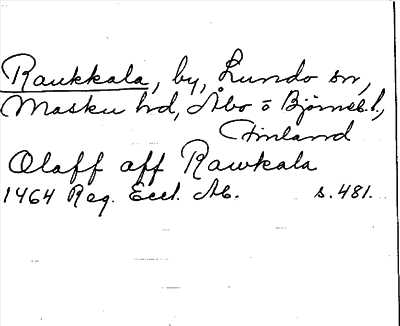 Raukkala, by, Lundo sn,
Masku hd, Åbo o Bjørneb. l.,
Finland
Olaff aff Rawkala
1464 Reg. Eccl. Ab. s. 481.